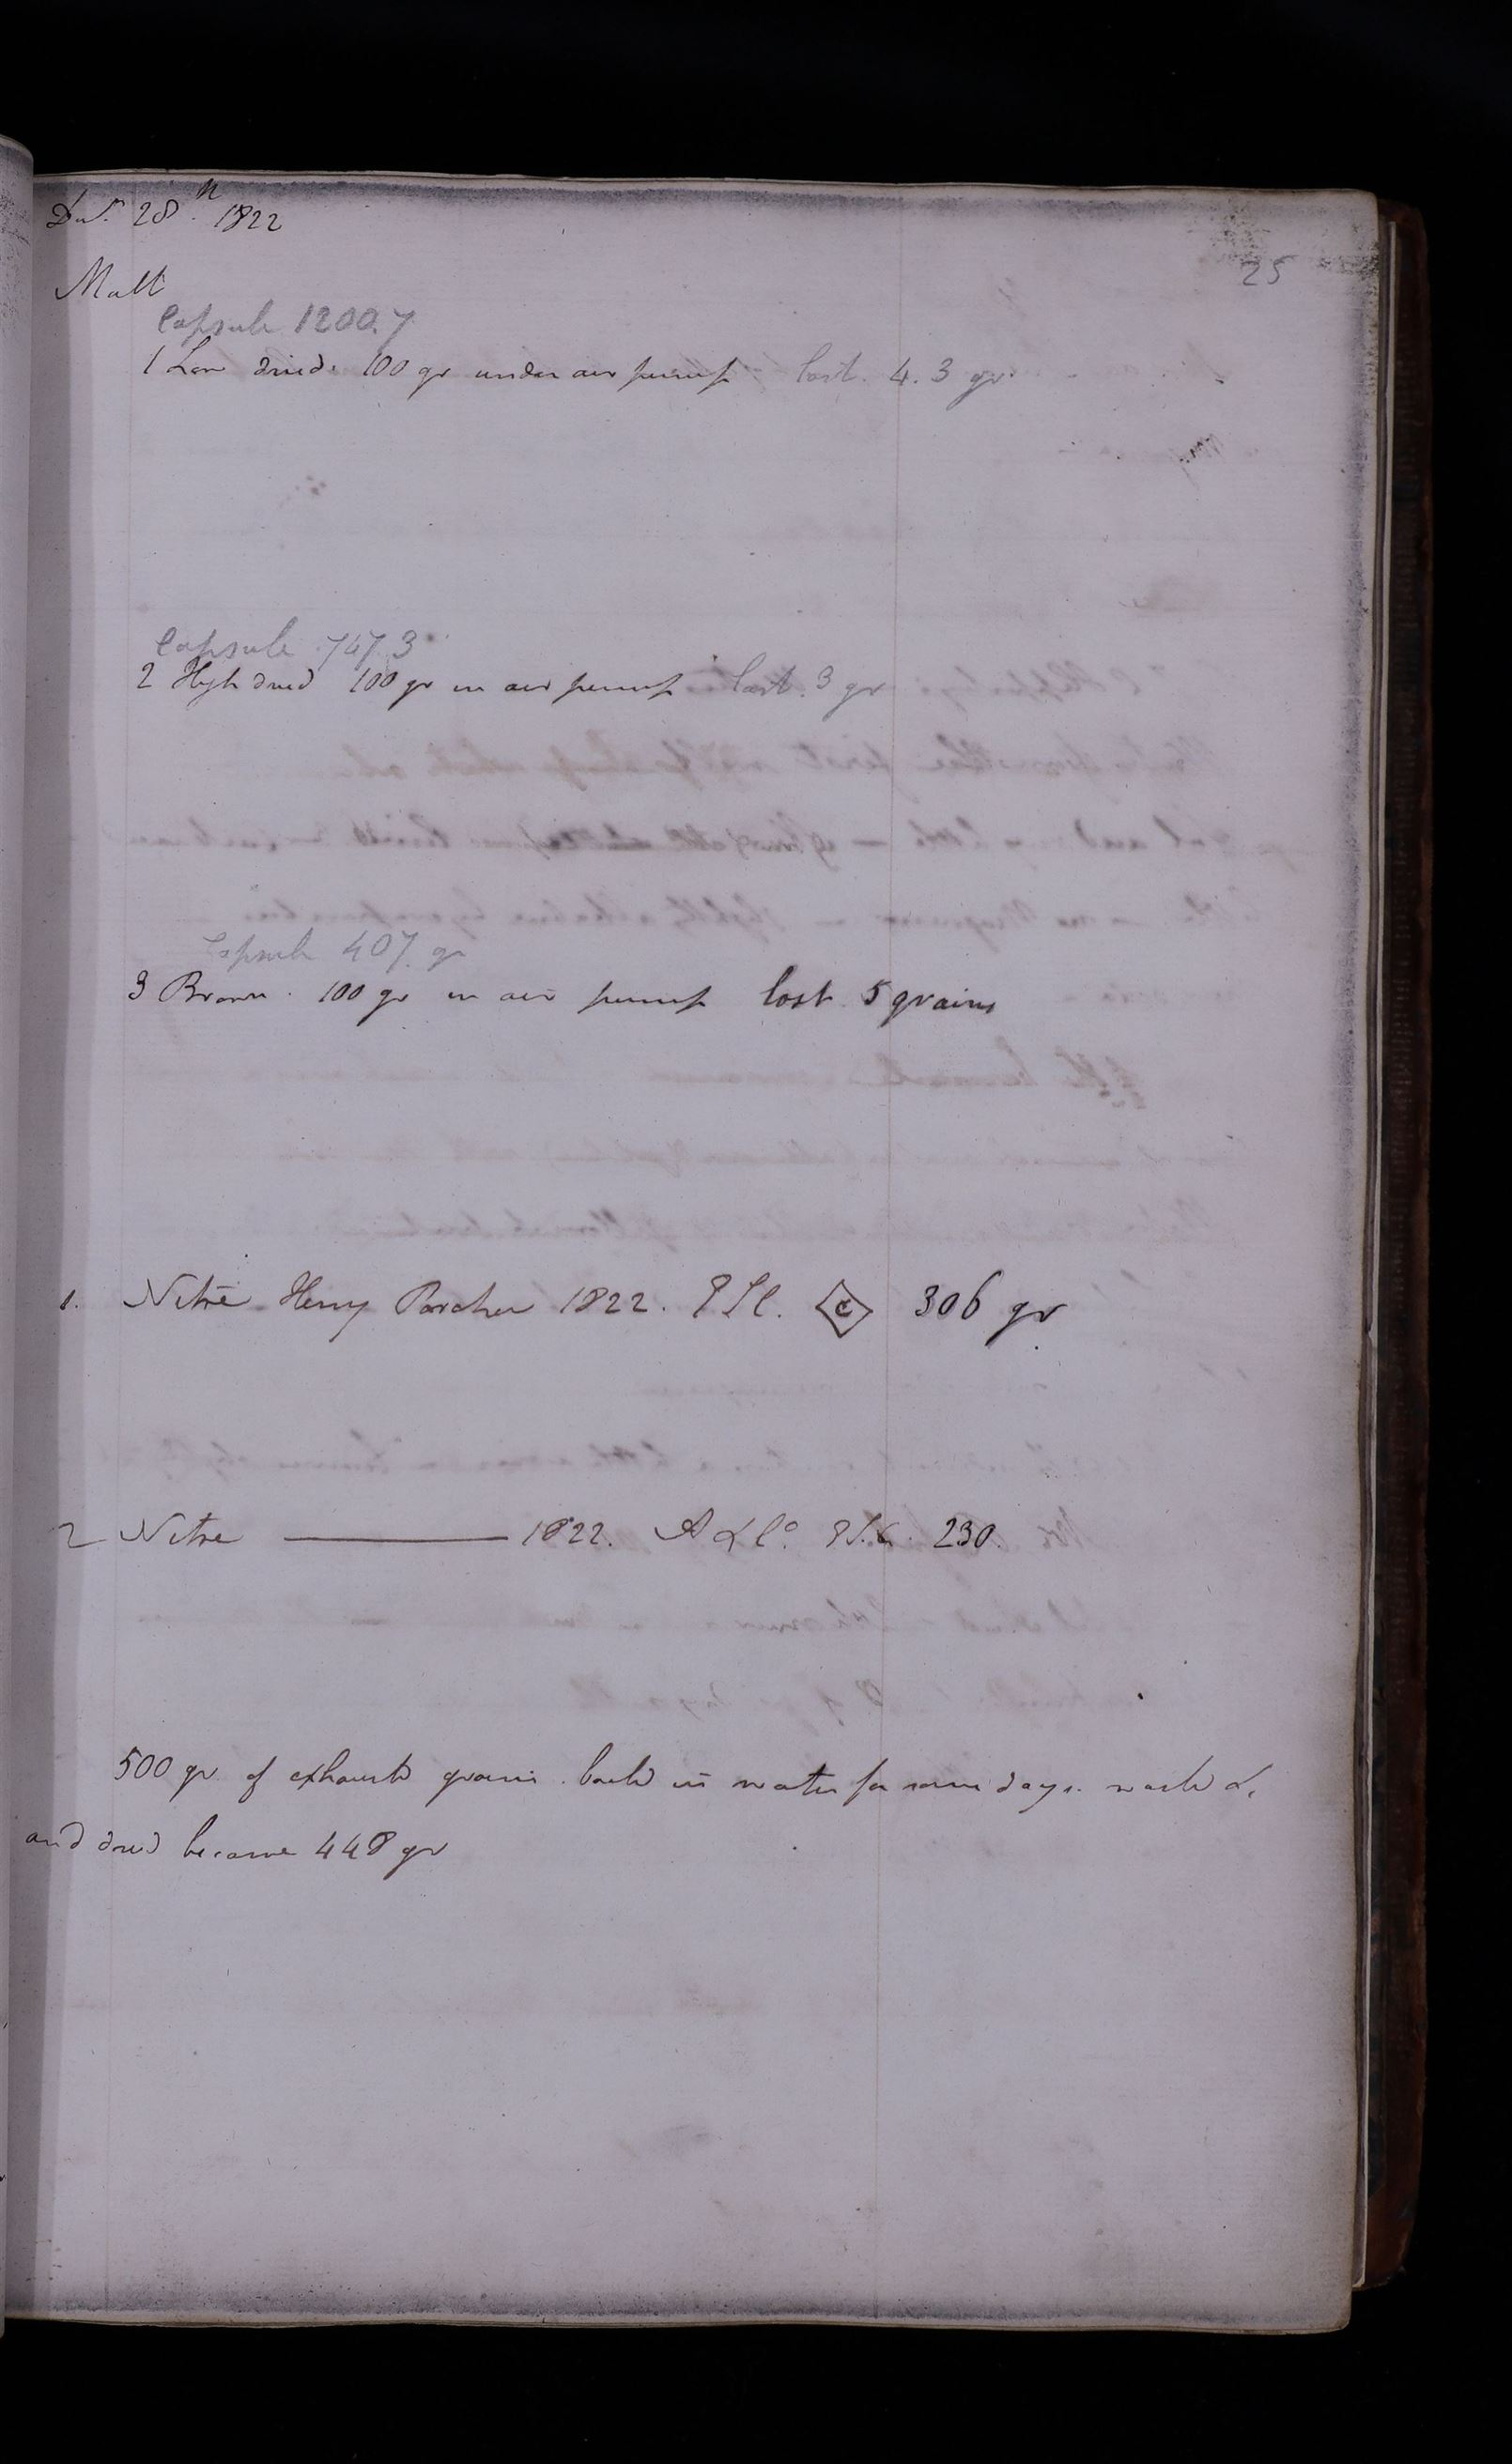 Decr 28th 1822
25
Malt
Capsule 1200.7
1 Low dried. 100 gr under air pump lost. 4.3 gr.
Capsule 747.3
2 High dried 100 gr in air pump lost. 3 gr
Capsule 407. gr
3 Brown. 100 gr in air pump lost 5 grains
1. Nitre Henry Porcher 1822. C 306 gr
2 Nitre ——— 1822. A & Co. 230.
500 gr of exhausted grains boiled in water for some days. washed &c
and dried became 448 gr